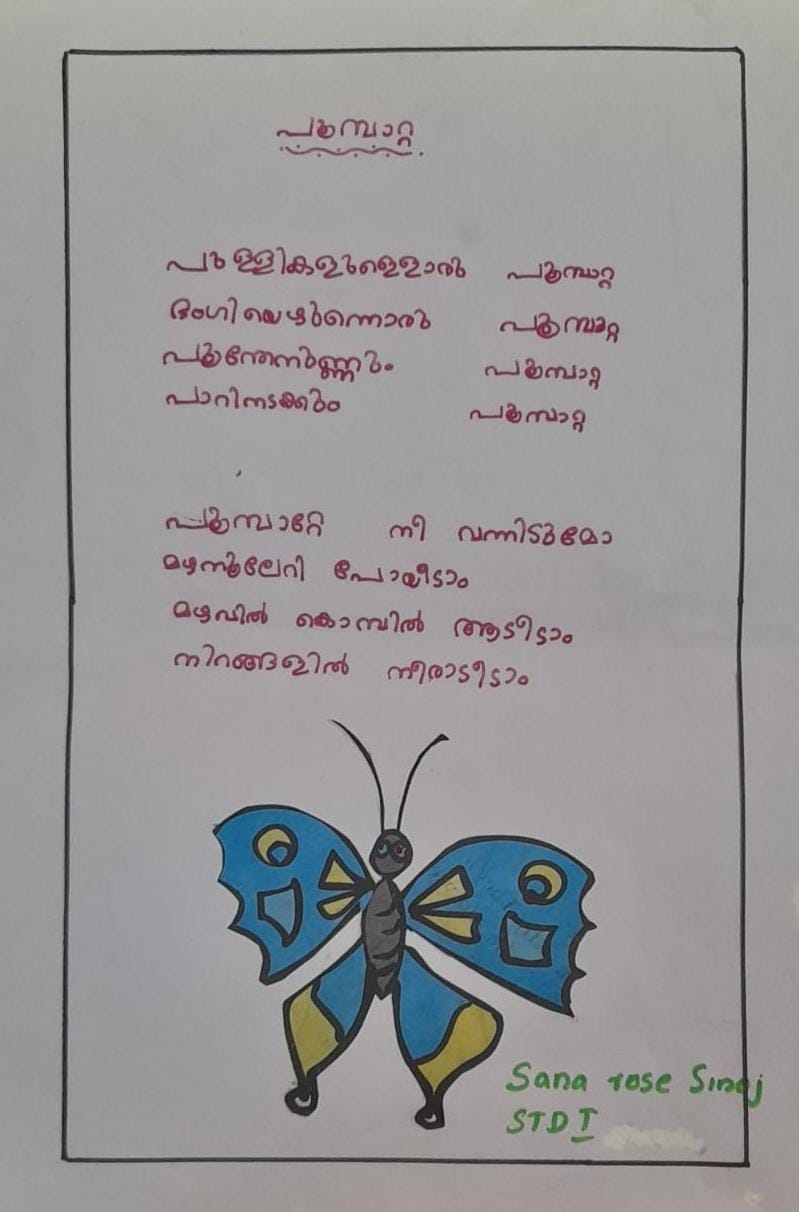 പൂമ്പാറ്റ
പുള്ളികളുള്ളൊരു പൂമ്പാറ്റ
ഭംഗിയെഴുന്നൊരു പൂമ്പാറ്റ
പൂന്തേനുണ്ണും പൂമ്പാറ്റ
പാറിനടക്കും പൂമ്പാറ്റ
പൂമ്പാറ്റേ നീ വന്നിടുമോ
മഴനൂലേറി പോയീടാം
മഴവിൽ കൊമ്പിൽ ആടീടാം
നിറങ്ങളിൽ നീരാടീടാം
Sana rose Sinoj
STD I